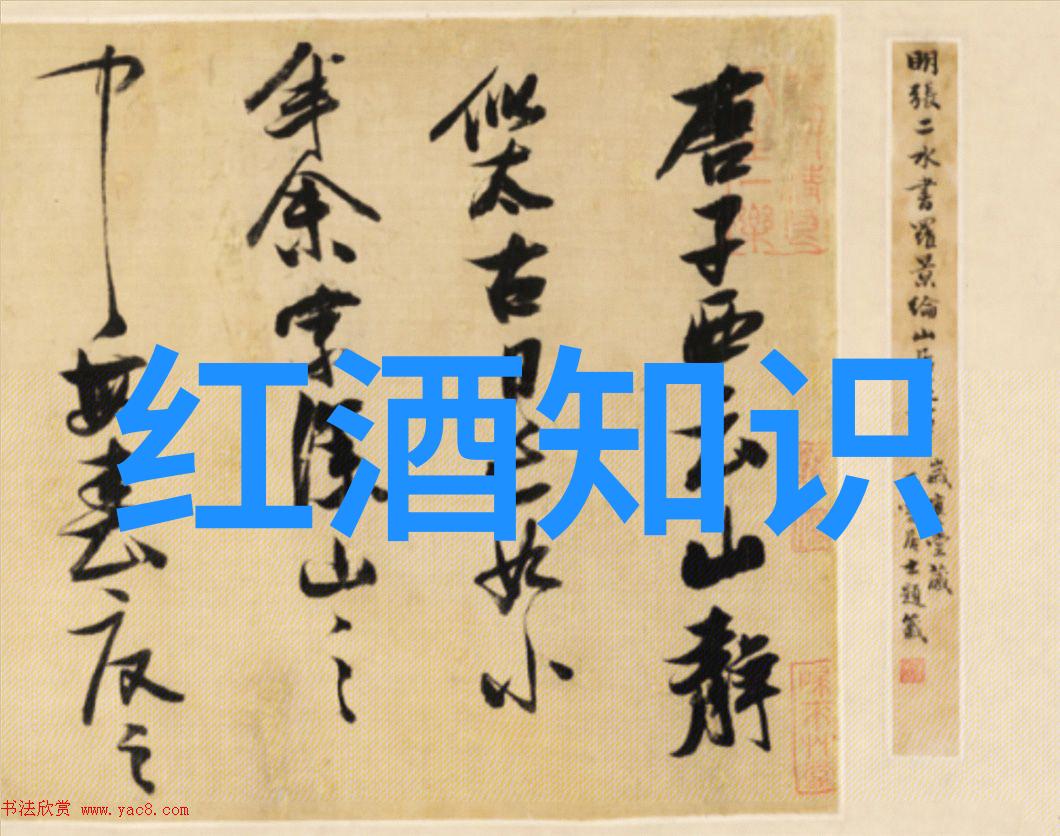 红酒知识
明張二水書羅景綸山
藏
居士題籤
唐子西云山靜
似太古日長如小
年余家深山之
中每春夏之
书法欣赏 www.yac8.com